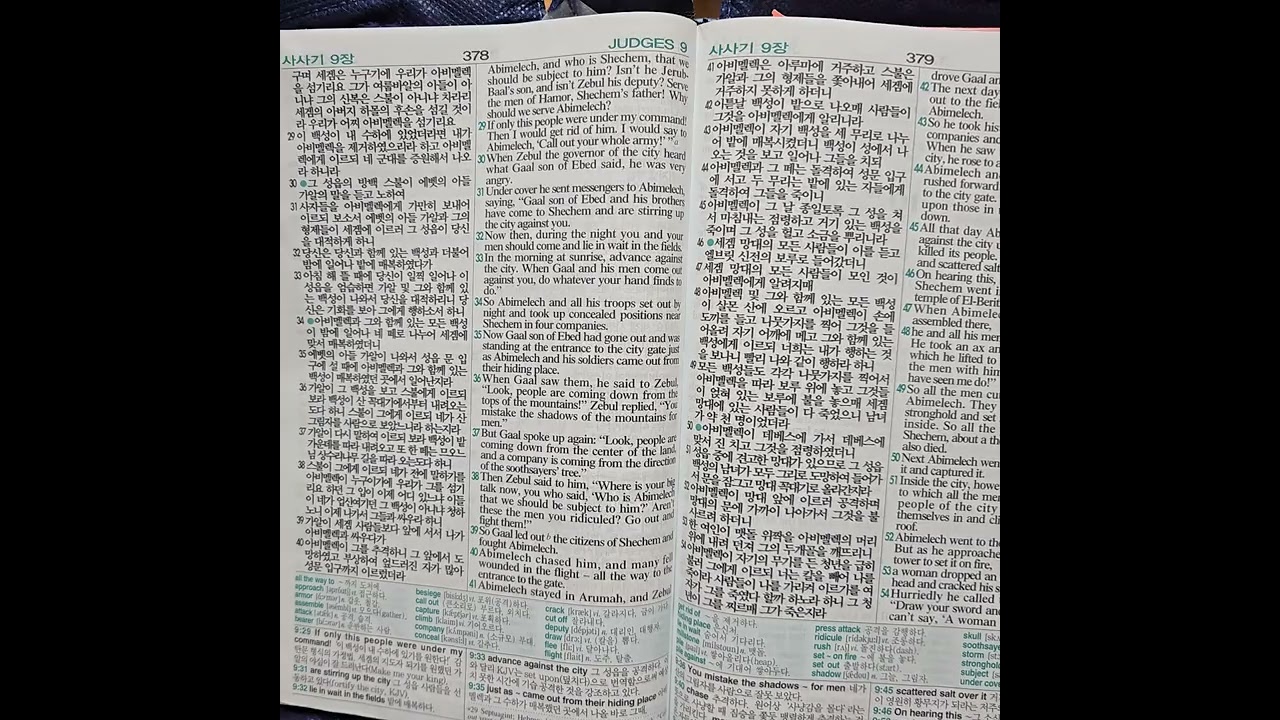 사사기 9장
378
JUDGES 9
구며 세겜은 누구기에 우리가 아비멜렉
을 섬기리요 그가 여룹바알의 아들이 아
니냐 그의 신복은 스불이 아니냐 차라리
세겜의 아버지 하몰의 후손을 섬길 것이
라 우리가 어찌 아비멜렉을 섬기리요
29 이 백성이 내 수하에 있었더라면 내가
아비멜렉을 제거하였으리라 하고 아비멜
렉에게 이르되 네 군대를 증원해서 나오
라 하니라
30 그 성읍의 방백 스불이 에벳의 아들
가알의 말을 듣고 노하여
31 사자들을 아비멜렉에게 가만히 보내어
이르되 보소서 에벳의 아들 가알과 그의
형제들이 세겜에 이르러 그 성읍이 당신
을 대적하게 하니
32 당신은 당신과 함께 있는 백성과 더불어
밤에 일어나 밭에 매복하였다가
33 아침 해 뜰 때에 당신이 일찍 일어나 이
성읍을 엄습하면 가알 및 그와 함께 있
는 백성이 나와서 당신을 대적하리니 당
신은 기회를 보아 그에게 행하소서 하니
34 아비멜렉과 그와 함께 있는 모든 백성
이 밤에 일어나 네 떼로 나누어 세겜에
맞서 매복하였더니
35 에벳의 아들 가알이 나와서 성읍 문 입
구에 설 때에 아비멜렉과 그와 함께 있는
백성이 매복하였던 곳에서 일어난지라
36 가알이 그 백성을 보고 스불에게 이르되
보라 백성이 산 꼭대기에서부터 내려오는
도다 하니 스불이 그에게 이르되 네가 산
그림자를 사람으로 보았느니라 하는지라
37 가알이 다시 말하여 이르되 보라 백성이 밭
가운데를 따라 내려오고 또 한 떼는 므오느
님 상수리나무 길을 따라 오는도다 하니
38 스불이 그에게 이르되 네가 전에 말하기를
아비멜렉이 누구이기에 우리가 그를 섬기
리요 하던 그 입이 이제 어디 있느냐 이들
이 네가 업신여기던 그 백성이 아니냐 청하
노니 이제 나가서 그들과 싸우라 하니
39 가알이 세겜 사람들보다 앞에 서서 나가
아비멜렉과 싸우다가
40 아비멜렉이 그를 추격하니 그 앞에서 도
망하였고 부상하여 엎드러진 자가 많아
성문 입구까지 이르렀더라
Abimelech, and who is Shechem, that we
should be subject to him? Isn't he Jerub-
Baal's son, and isn't Zebul his deputy? Serve
the men of Hamor, Shechem's father! Why
should we serve Abimelech?
29 If only this people were under my command!
Then I would get rid of him. I would say to
Abimelech, 'Call out your whole army!' " a
30 When Zebul the governor of the city heard
what Gaal son of Ebed said, he was very
angry.
31 Under cover he sent messengers to Abimelech,
saying, "Gaal son of Ebed and his brothers
have come to Shechem and are stirring up
the city against you.
32 Now then, during the night you and your
men should come and lie in wait in the fields.
33 In the morning at sunrise, advance against
the city. When Gaal and his men come out
against you, do whatever your hand finds to
do."
34 So Abimelech and all his troops set out by
night and took up concealed positions near
Shechem in four companies.
35 Now Gaal son of Ebed had gone out and was
standing at the entrance to the city gate just
as Abimelech and his soldiers came out from
their hiding place.
36 When Gaal saw them, he said to Zebul,
"Look, people are coming down from the
tops of the mountains!" Zebul replied, "You
mistake the shadows of the mountains for
men."
37 But Gaal spoke up again: "Look, people are
coming down from the center of the land,
and a company is coming from the direction
of the soothsayers' tree."
38 Then Zebul said to him, "Where is your big
talk now, you who said, 'Who is Abimelech
that we should be subject to him?' Aren't
these the men you ridiculed? Go out and
fight them!"
39 So Gaal led out b the citizens of Shechem and
fought Abimelech.
40 Abimelech chased him, and many fell
wounded in the flight – all the way to the
entrance to the gate.
41 Abimelech stayed in Arumah, and Zebul
all the way to ~까지 도처에
approach
armor
assemble
attack
bearer
besiege
call out
capture
climb
company
conceal
crack
cut off
deputy
draw
flee
flight
9:29 If only this people were under my
command!
9:31 are stirring up the city
9:32 lie in wait in the fields 밭에 매복하다.
9:33 advance against the city
9:35 just as ~ came out from their hiding place
사사기 9장
379
41 아비멜렉은 아루마에 거주하고 스불은
가알과 그의 형제들을 쫓아내어 세겜에
거주하지 못하게 하더니
42 이튿날 백성이 밭으로 나오매 사람들이
그것을 아비멜렉에게 알리니라
43 아비멜렉이 자기 백성을 세 무리로 나누
어 밭에 매복시켰더니 백성이 성에서 나
오는 것을 보고 일어나 그들을 치되
44 아비멜렉과 그 떼는 돌격하여 성문 입구
에 서고 두 무리는 밭에 있는 자들에게
돌격하여 그들을 죽이니
45 아비멜렉이 그 날 종일토록 그 성을 쳐
서 마침내는 점령하고 거기 있는 백성을
죽이며 그 성을 헐고 소금을 뿌리니라
46 세겜 망대의 모든 사람들이 이를 듣고
엘브릿 신전의 보루로 들어갔더니
47 세겜 망대의 모든 사람들이 모인 것이
아비멜렉에게 알려지매
48 아비멜렉 및 그와 함께 있는 모든 백성
이 살몬 산에 오르고 아비멜렉이 손에
도끼를 들고 나뭇가지를 찍어 그것을 들
어올려 자기 어깨에 메고 그와 함께 있는
백성에게 이르되 너희는 내가 행하는 것
을 보나니 빨리 나와 같이 행하라 하니
49 모든 백성들도 각각 나뭇가지를 찍어서
아비멜렉을 따라 보루 위에 놓고 그것들
이 얹혀 있는 보루에 불을 놓으매 세겜
망대에 있는 사람들이 다 죽었으니 남녀
가 약 천 명이었더라
50 아비멜렉이 데베스에 가서 데베스에
맞서 진 치고 그것을 점령하였더니
51 성읍 중에 견고한 망대가 있으므로 그 성읍
백성의 남녀가 모두 그리로 도망하여 들어가
서 문을 잠그고 망대 꼭대기로 올라간지라
52 아비멜렉이 망대 앞에 이르러 공격하며
망대의 문에 가까이 나아가서 그것을 불
사르려 하더니
53 한 여인이 맷돌 위짝을 아비멜렉의 머리
위에 내려 던져 그의 두개골을 깨뜨리니
54 아비멜렉이 자기의 무기를 든 청년을 급히
불러 그에게 이르되 너는 칼을 빼어 나를
죽이라 사람들이 나를 가리켜 이르기를 여
자가 그를 죽였다 할까 하노라 하니 그 청
년이 그를 찌르매 그가 죽은지라
drove Gaal an
42 The next day
out to the fie
Abimelech.
43 So he took his
companies and
When he saw
city, he rose to a
44 Abimelech and
rushed forward
to the city gate.
upon those in
down.
45 All that day Ab
against the city u
killed its people.
and scattered salt
46 On hearing this,
Shechem went in
temple of El-Berit
47 When Abimelec
assembled there,
48 he and all his men
He took an ax an
which he lifted to
the men with him
have seen me do!"
49 So all the men cu
Abimelech. They
stronghold and set
inside. So all the
Shechem, about a th
also died.
50 Next Abimelech wen
it and captured it.
51 Inside the city, howe
to which all the me
people of the city
themselves in and cl
roof.
52 Abimelech went to th
But as he approache
tower to set it on fire,
53 a woman dropped an
head and cracked his s
54 Hurriedly he called
"Draw your sword an
can't say, 'A woman
get rid of
hiding place
lie in wait
millstone
press attack 공격을 감행하다.
ridicule
rush
set ~ on fire ~에 불을 놓다.
set out 출발하다(start).
shadow
skull
soothsaye
storm
stronghold
subject
under cove
9:36 You mistake the shadows ~ for men
9:45 scattered salt over it
9:46 On hearing this